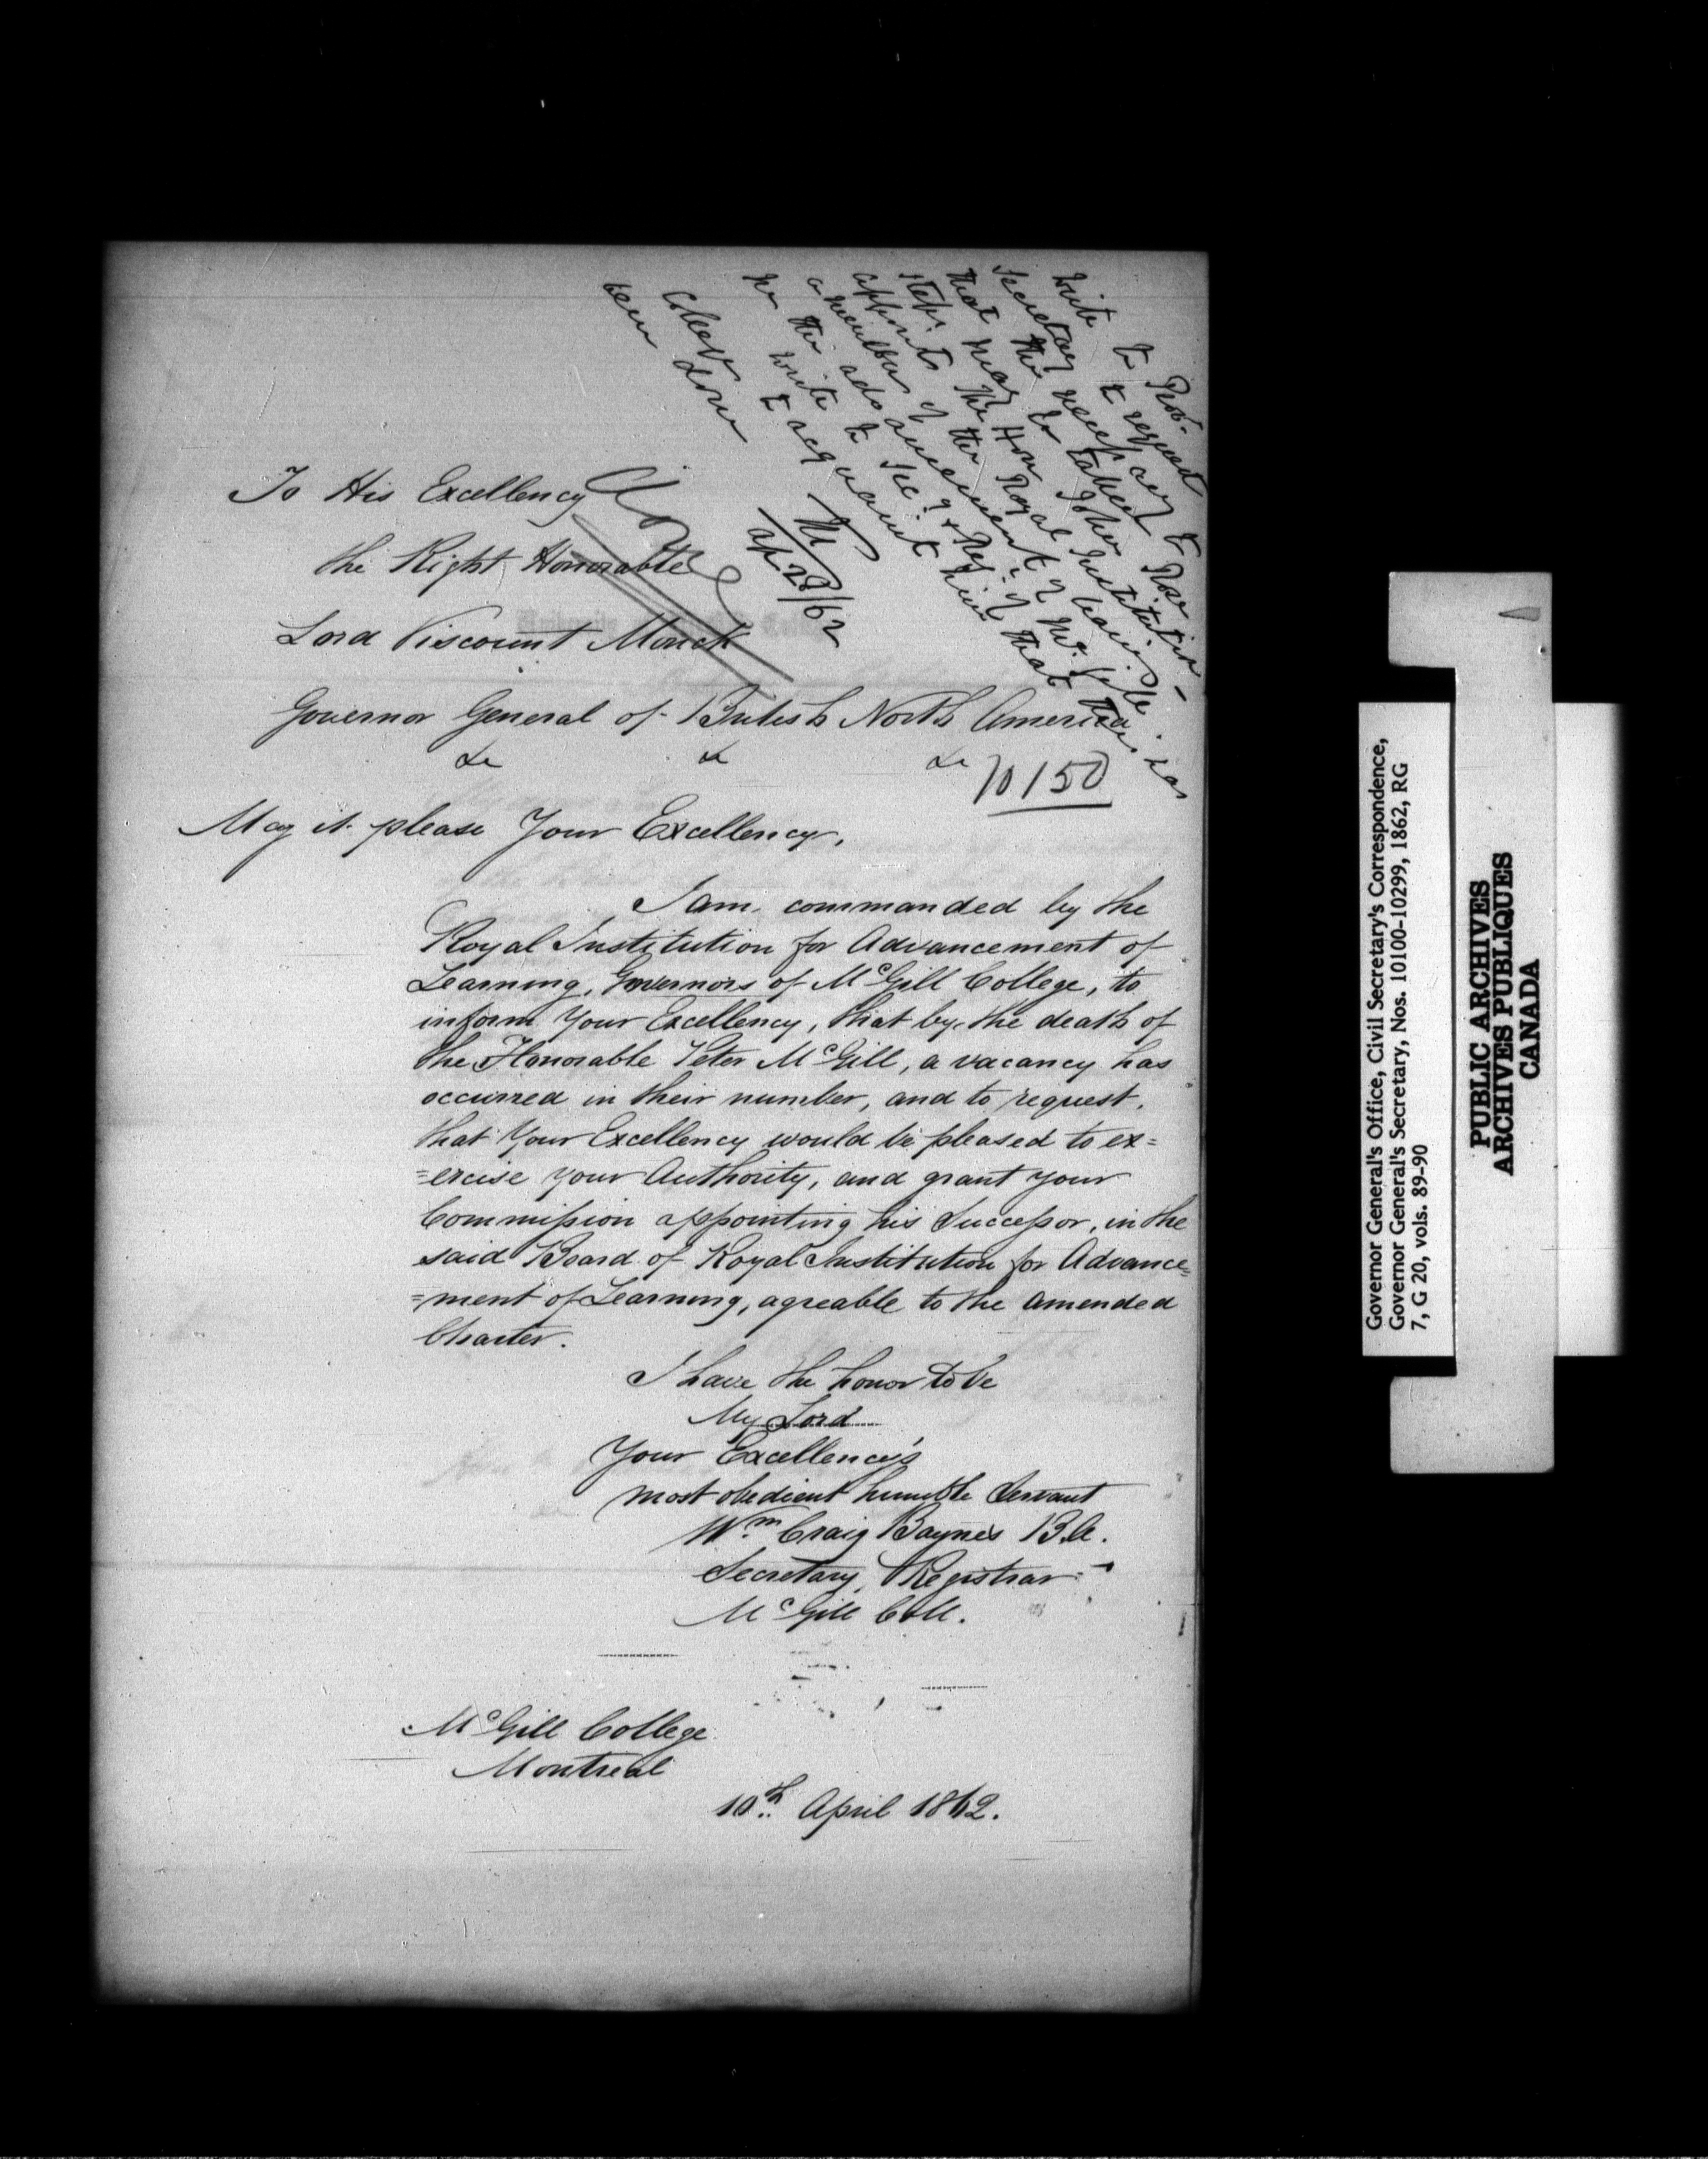 Write to Prov.
Secretary to request
that the necessary
steps may be taken to
appoint the Hon John Rose
a member of the Royal Institution
for the advancement of learning
write to Sec. & Reg. of McGill
College to acquaint him that this has
been done
M
Ap 28/62
To His Excellency
the Right Honorable
Lord Viscount Monck
Governor General of British North America
&c &c &c
10150
May it please Your Excellency,
I am commanded by the
Royal Institution for Advancement of
Learning, Governors of McGill College, to
inform Your Excellency, that by the death of
the Honorable Peter McGill, a vacancy has
occurred in their number, and to request,
that Your Excellency would be pleased to ex=
=ercise your Authority, and grant your
Commission appointing his Successor, in the
said Board of Royal Institution for Advance=
=ment of Learning, agreable to the amended
Charter.
I have the honor to be
My Lord
Your Excellency's
most obedient humble Servant
Wm. Craig Baynes B.A.
Secretary, Registrar
McGill Coll.
McGill College
Montreal
10th April 1862.
Governor General's Office, Civil Secretary's Correspondence,
Governor General's Secretary, Nos. 10100-10299, 1862, RG
7, G 20, vols. 89-90
PUBLIC ARCHIVES
ARCHIVES PUBLIQUES
CANADA